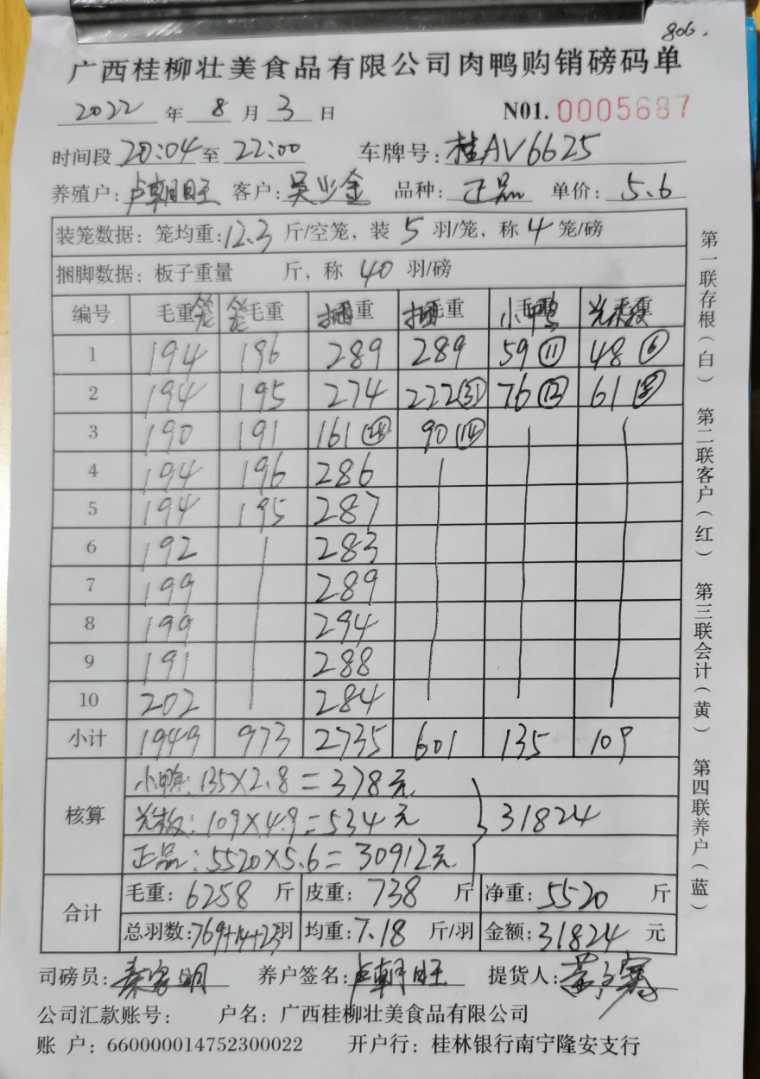 806.
广西桂柳壮美食品有限公司肉鸭购销磅码单
2022 年 8 月 3 日 N01. 0005687
时间段 20:04 至 22:00 车牌号: 桂AV6625
养殖户: 卢朝旺 客户: 吴少金 品种: 正品 单价: 5.6
装笼数据: 笼均重: 12.3 斤/空笼, 装 5 羽/笼, 称 4 笼/磅
捆脚数据: 板子重量 斤, 称 40 羽/磅
编号 毛重笼 笼毛重 捆重 捆毛重 小鸭 光板
1 194 196 289 289 59⑪ 48⑥
2 194 195 274 222㉛ 76⑫ 61⑧
3 190 191 161 90⑭
4 194 196 286
5 194 195 287
6 192 283
7 199 289
8 199 294
9 191 288
10 202 284
小计 1949 973 2735 601 135 109
核算 小鸭: 135×2.8=378元
光板: 109×4.9=534元 31824
正品: 5520×5.6=30912元
合计 毛重: 6258 斤 皮重: 738 斤 净重: 5520 斤
总羽数: 769+14+23羽 均重: 7.18 斤/羽 金额: 31824 元
司磅员: 养户签名: 卢朝旺 提货人:
公司汇款账号: 户名: 广西桂柳壮美食品有限公司
账 户: 660000014752300022 开户行: 桂林银行南宁隆安支行
第一联存根(白) 第二联客户(红) 第三联会计(黄) 第四联养户(蓝)